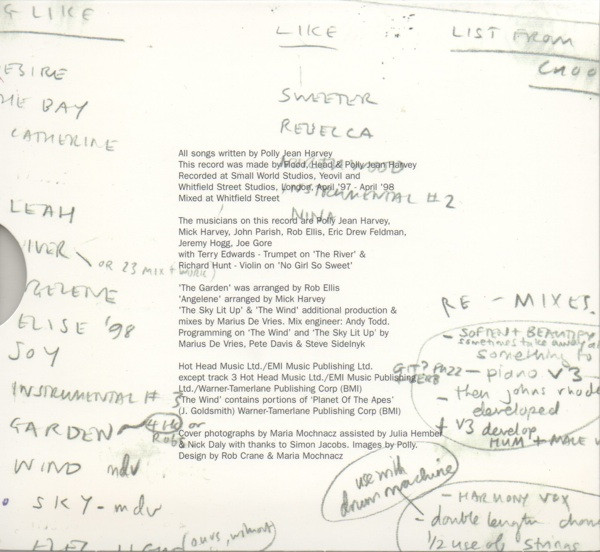 G LIKE
LIKE
LIST FROM
ESIRE
HE BAY
CATHERINE
SWEETER
REBECCA
NINA
LEAH
IVER
OR 23 MIX +
GELENE
ELISE '98
JOY
INSTRUMENTAL # 3
GARDEN
4lk or
Rob's
WIND mdv
SKY - mdv
All songs written by Polly Jean Harvey
This record was made by Flood, Head & Polly Jean Harvey
Recorded at Small World Studios, Yeovil and
Whitfield Street Studios, London, April '97 - April '98
Mixed at Whitfield Street
INSTRUMENTAL # 2
The musicians on this record are Polly Jean Harvey,
Mick Harvey, John Parish, Rob Ellis, Eric Drew Feldman,
Jeremy Hogg, Joe Gore
with Terry Edwards - Trumpet on 'The River' &
Richard Hunt - Violin on 'No Girl So Sweet'
'The Garden' was arranged by Rob Ellis
'Angelene' arranged by Mick Harvey
'The Sky Lit Up' & 'The Wind' additional production &
mixes by Marius De Vries. Mix engineer: Andy Todd.
Programming on 'The Wind' and 'The Sky Lit Up' by
Marius De Vries, Pete Davis & Steve Sidelnyk
Hot Head Music Ltd./EMI Music Publishing Ltd.
except track 3 Hot Head Music Ltd./EMI Music Publishing
Ltd./Warner-Tamerlane Publishing Corp (BMI)
'The Wind' contains portions of 'Planet Of The Apes'
(J. Goldsmith) Warner-Tamerlane Publishing Corp (BMI)
Cover photographs by Maria Mochnacz assisted by Julia Hember
& Nick Daly with thanks to Simon Jacobs. Images by Polly.
Design by Rob Crane & Maria Mochnacz
RE - MIXES.
- SOFTEN + BEAUTIFY
sometimes take away
something to
- piano V3
- then johns rhode
developed
+ V3 develop
HUM + MALE V
use with
drum machine
- HARMONY VOX
- double length
1/2 use of strings
(ours, without